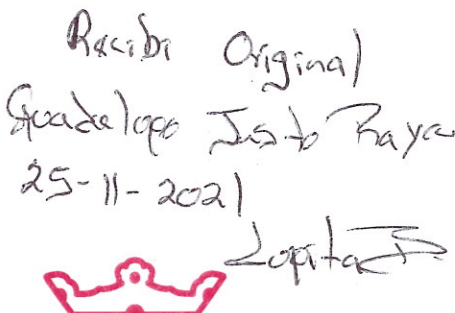 Recibi Original
Guadalope Justo Raya
25-11-2021
Lopita JR